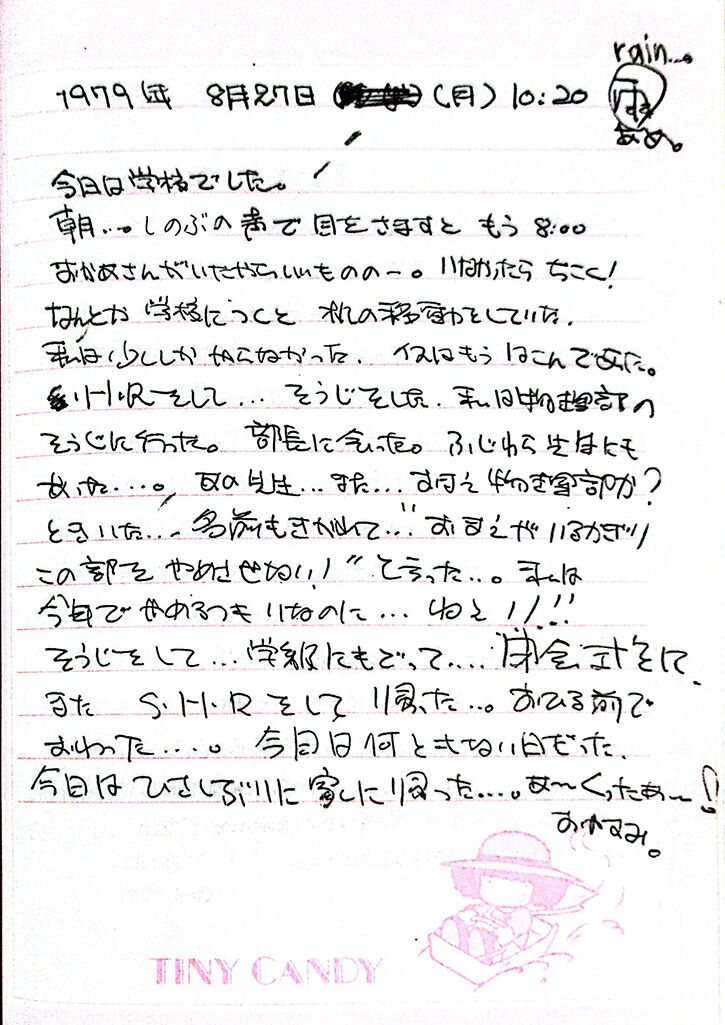 rain...
1979年 8月27日 (月) 10:20
雨
あめ。
今日は学校でした。
朝...。しのぶの声で目をさますと もう 8:00
おかあさんがいたからいいものの〜。いなかったら ちこく!
なんとか 学校につくと 机の移動をしていた。
私は少ししか やらなかった。イスはもう はこんであった。
S.H.Rをして... そうじをした。私は物理部の
そうじに行った。部長に会った。ふじわら先生にも
あった....。あの先生...また...おまえ物理部か?
ときいた... 名前もきかれて..."おまえがいるかぎり
この部を やめさせない!"と言った...。私は
今年でやめるつもりなのに... ねえ!!!
そうじをして...学級にもどって.... 閉会式をして、
また S.H.Rをして 帰った...。おひる前で
おわった....。今日は何ともない日だった。
今日は ひさしぶりに 家に帰った....。あ〜くったあ〜!
おやすみ。
TINY CANDY